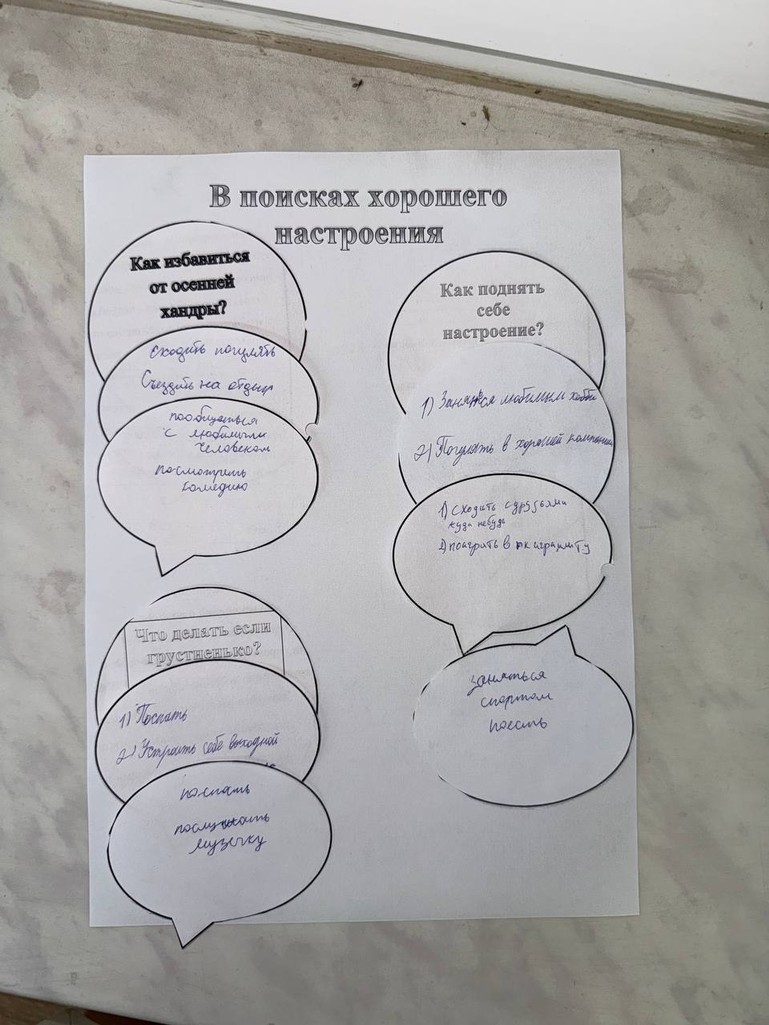 В поисках хорошего
настроения
Как избавиться
от осенней
хандры?
Сходить погулять
Съездить на отдых
пообщаться
с любимым
человеком
посмотреть
комедию
Как поднять
себе
настроение?
1) Заняться любимым хобби
2) Погулять в хорошей компании
1) сходить с друзьями
куда нибудь
2) поиграть в
заняться
спортом
поесть
Что делать если
грустненько?
1) Поспать
2) Устроить себе выходной
поспать
послушать
музычку